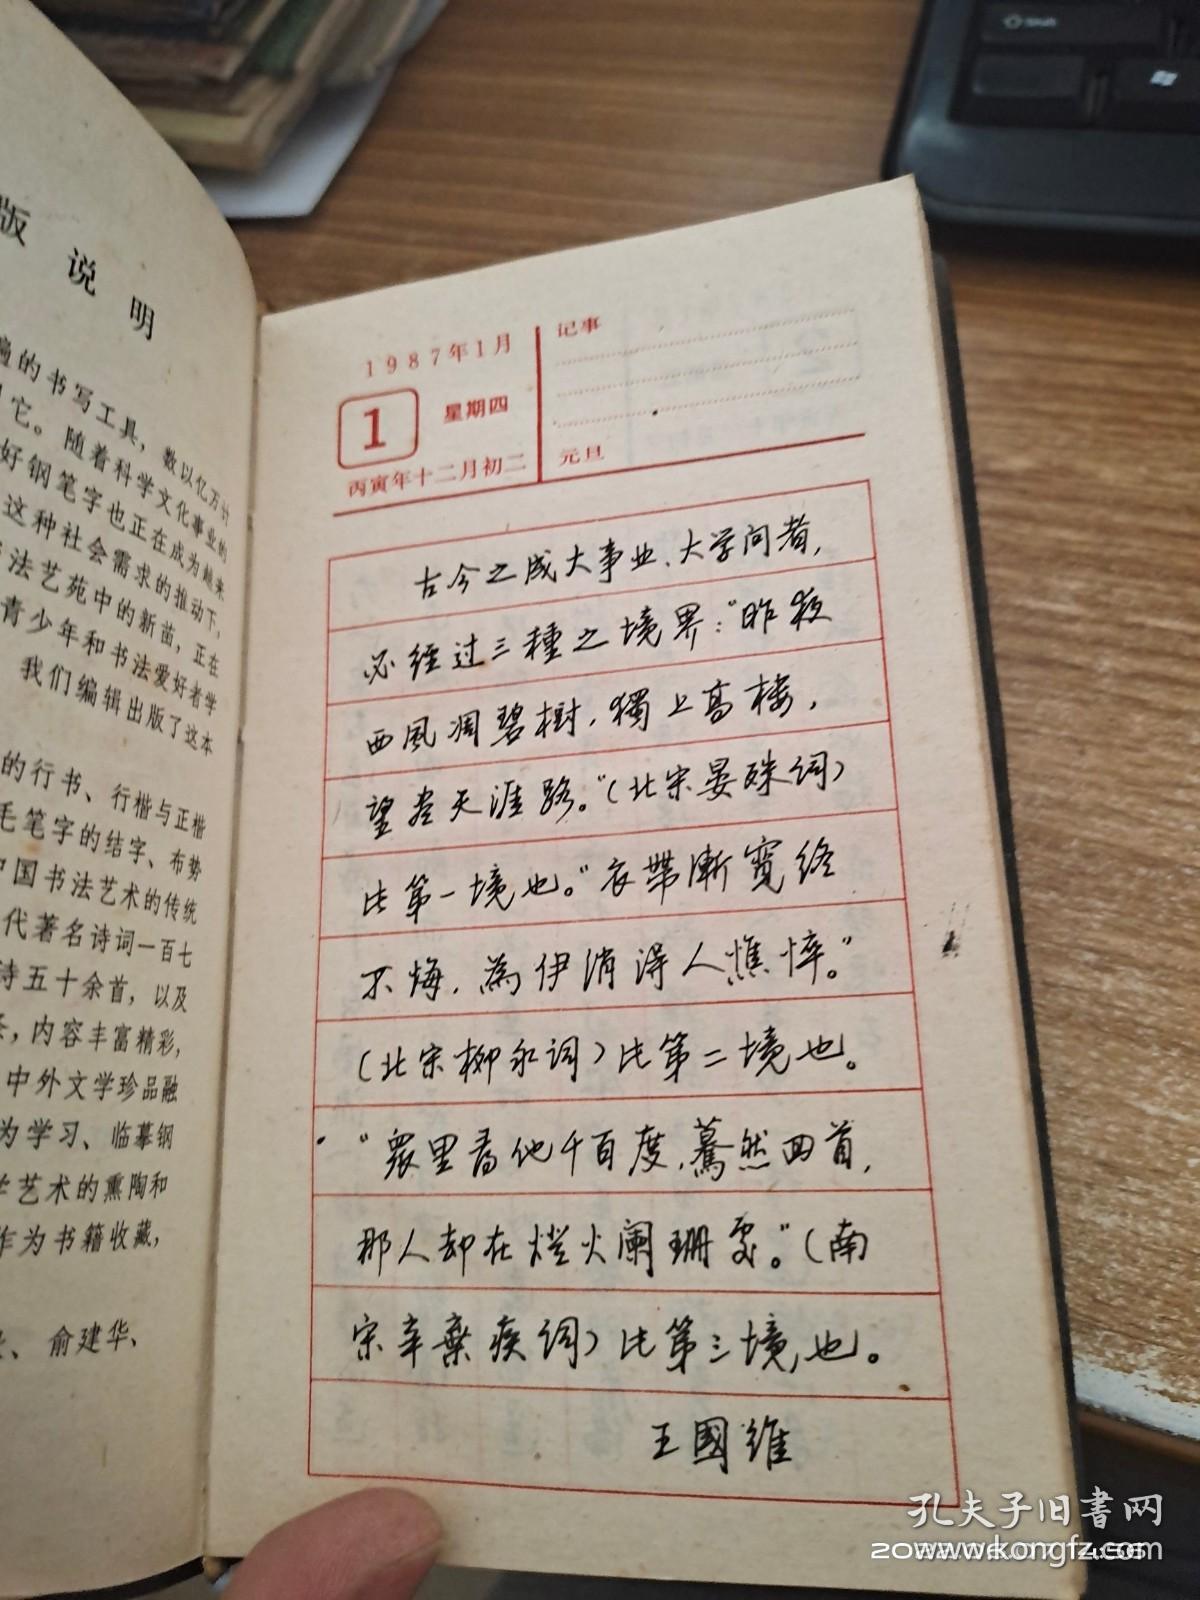 版说明
遍的书写工具，数以亿万计
它。随着科学文化事业的
好钢笔字也正在成为越来
这种社会需求的推动下，
书法艺苑中的新苗，正在
青少年和书法爱好者学
我们编辑出版了这本
的行书、行楷与正楷
毛笔字的结字、布势
中国书法艺术的传统
代著名诗词一百七
诗五十余首，以及
条，内容丰富精彩，
中外文学珍品融
为学习、临摹钢
学艺术的熏陶和
作为书籍收藏，
、俞建华、
1987年1月
1
星期四
丙寅年十二月初二
记事
元旦
古今之成大事业、大学问者，
必经过三種之境界："昨夜
西風凋碧樹，獨上高楼，
望尽天涯路。"（北宋晏殊词）
此第一境也。"衣帶漸寬终
不悔，為伊消得人憔悴。"
（北宋柳永词）此第二境也。
"衆里尋他千百度，驀然回首，
那人却在燈火阑珊处。"（南
宋辛棄疾词）此第三境也。
王國维
孔夫子旧书网
www.kongfz.com
Shift